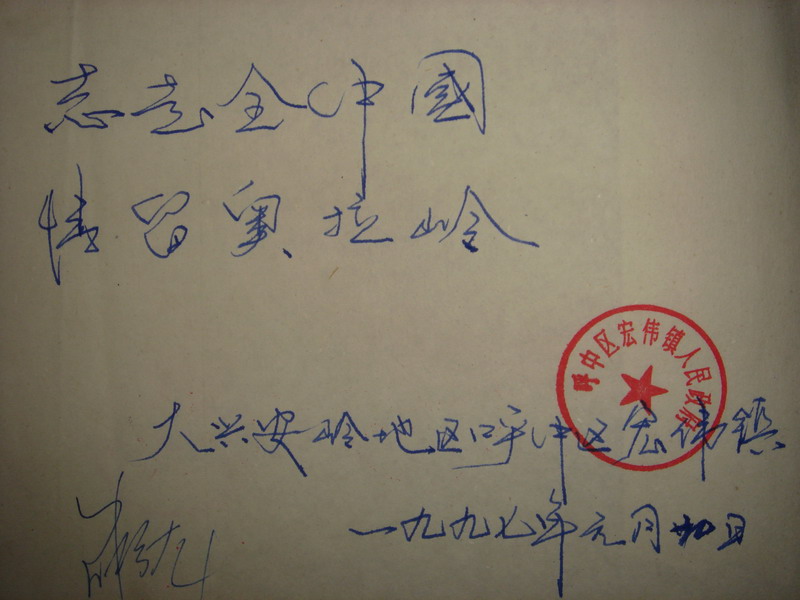 志走全中國
情留奥拉岭
呼中区宏伟镇人民政府
大兴安岭地区呼中区宏伟镇
一九九七年元月廿九日